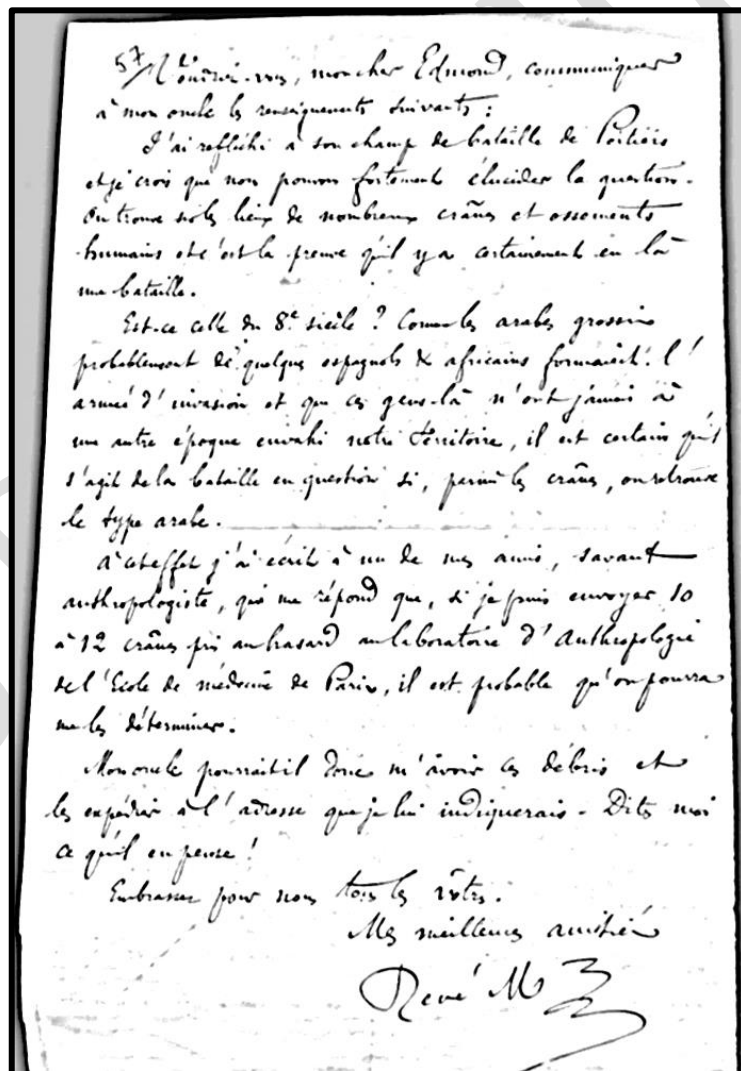 57
Voudriez-vous, mon cher Edmond, communiquer
à mon oncle les renseignements suivants :
J'ai réfléchi à son champ de bataille de Poitiers
et je crois que nous pouvons fortement élucider la question.
On trouve sur les lieux de nombreux crânes et ossements
humains et c'est la preuve qu'il y a certainement eu là
une bataille.
Est-ce celle du 8e siècle ? Comme les arabes grossis
probablement de quelques espagnols & africains formaient l'
armée d'invasion et que ces gens-là n'ont jamais à
une autre époque envahi notre territoire, il est certain qu'il
s'agit de la bataille en question si, parmi les crânes, on retrouve
le type arabe.
A cet effet j'ai écrit à un de mes amis, savant
anthropologiste, qui me répond que, si je puis envoyer 10
à 12 crânes pris au hasard au laboratoire d'Anthropologie
de l'Ecole de médecine de Paris, il est probable qu'on pourra
me les déterminer.
Mon oncle pourrait-il donc m'avoir ces débris et
les expédier à l'adresse que je lui indiquerais. Dites moi
ce qu'il en pense !
Embrassez pour nous tous les vôtres.
Mes meilleures amitiés
René M